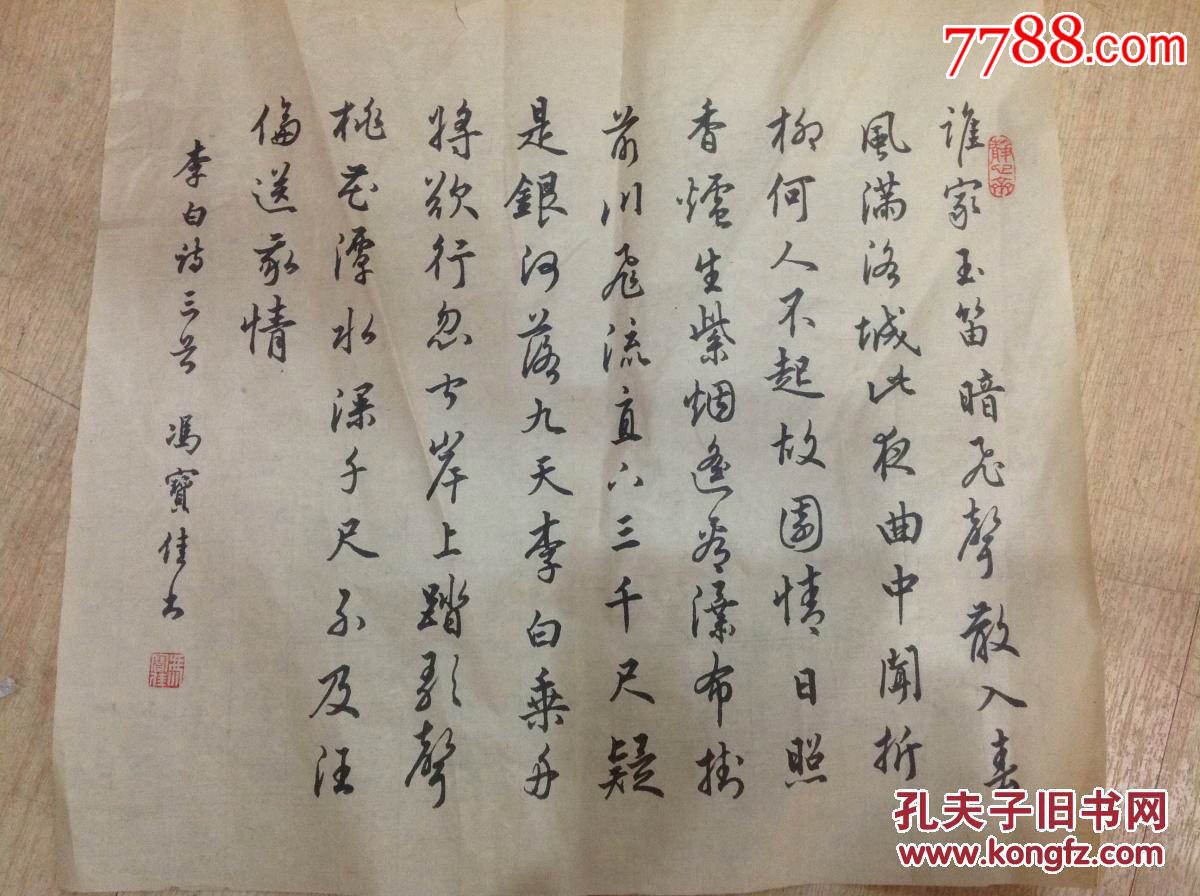 7788.com
誰家玉笛暗飛聲散入春
風滿洛城此夜曲中聞折
柳何人不起故園情日照
香爐生紫烟遙看瀑布掛
前川飛流直下三千尺疑
是銀河落九天李白乘舟
將欲行忽聞岸上踏歌聲
桃花潭水深千尺不及汪
倫送我情
李白詩三首 馮寶佳書
孔夫子旧书网
www.kongfz.com